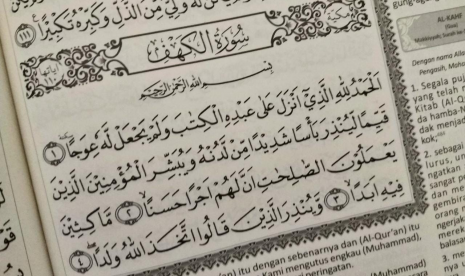 وَلِيٌّ مِّنَ الذُّلِّ وَكَبِّرْهُ تَكْبِيرًا ۝١١١
سُورَةُ الْكَهْفِ
مكية
آياتها ١١٠
بِسْمِ اللهِ الرَّحْمٰنِ الرَّحِيْمِ
اَلْحَمْدُ لِلّٰهِ الَّذِيْٓ اَنْزَلَ عَلٰى عَبْدِهِ الْكِتٰبَ وَلَمْ يَجْعَلْ لَّهٗ عِوَجًا ۝١
قَيِّمًا لِّيُنْذِرَ بَأْسًا شَدِيْدًا مِّنْ لَّدُنْهُ وَيُبَشِّرَ الْمُؤْمِنِيْنَ الَّذِيْنَ
يَعْمَلُوْنَ الصّٰلِحٰتِ اَنَّ لَهُمْ اَجْرًا حَسَنًا ۝٢ مَّاكِثِيْنَ
فِيْهِ اَبَدًا ۝٣ وَّيُنْذِرَ الَّذِيْنَ قَالُوا اتَّخَذَ اللّٰهُ وَلَدًا ۝٤
AL-KAHF
(Gua)
Dengan nama Alla
Pengasih, Maha
1. Segala puj
yang telah
Kitab (Al-Qu
da hamba-
dak menjad
kok;
2. sebagai
lurus, un
ngatkan
sangat p
dan me
gemb
orang
ngerjak
mereka
balasa
3. me
itu dengan sebenarnya dan (Al-Qur'an) itu
Kami mengutus engkau (Muhammad),
(Muhammad),